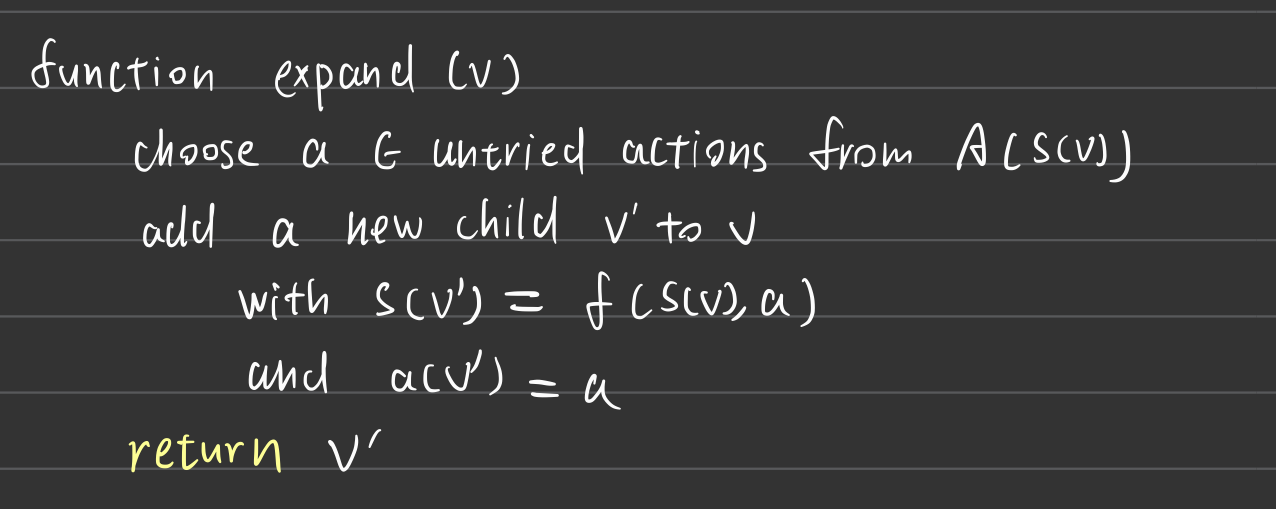 function expand (v)
choose a ∈ untried actions from A(S(v))
add a new child v' to v
with S(v') = f(S(v), a)
and a(v') = a
return v'